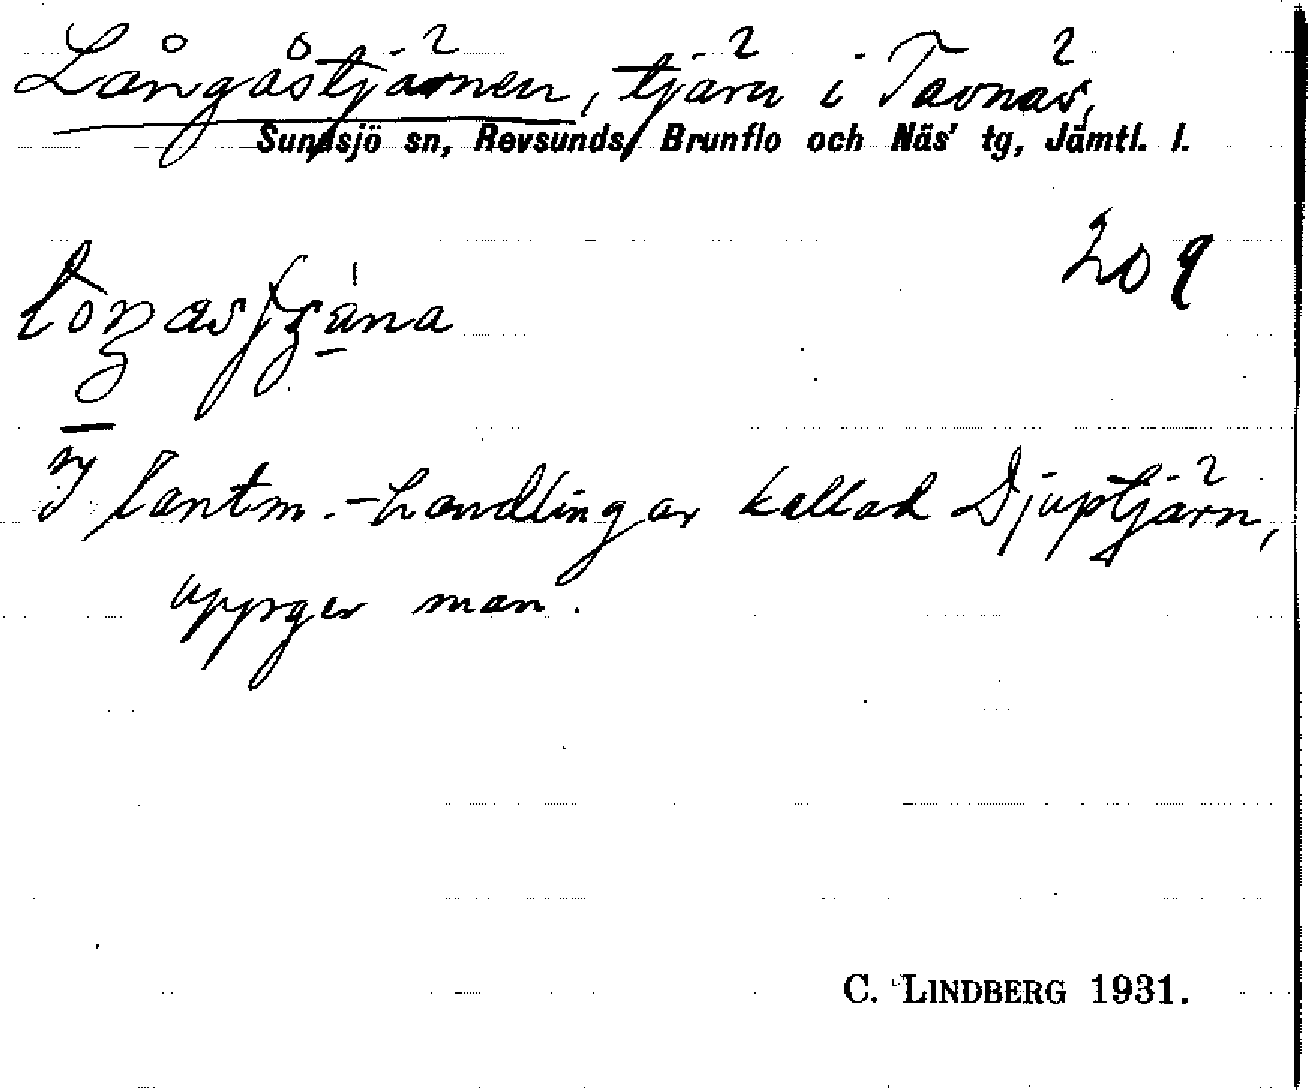 Långåstjärnen, tjärn i Tavnäs,
Sundsjö sn, Revsunds, Brunflo och Näs' tg, Jämtl. l.
209
I lantm.-handlingar kallad Djuptjärn,
uppger man.
C. LINDBERG 1931.